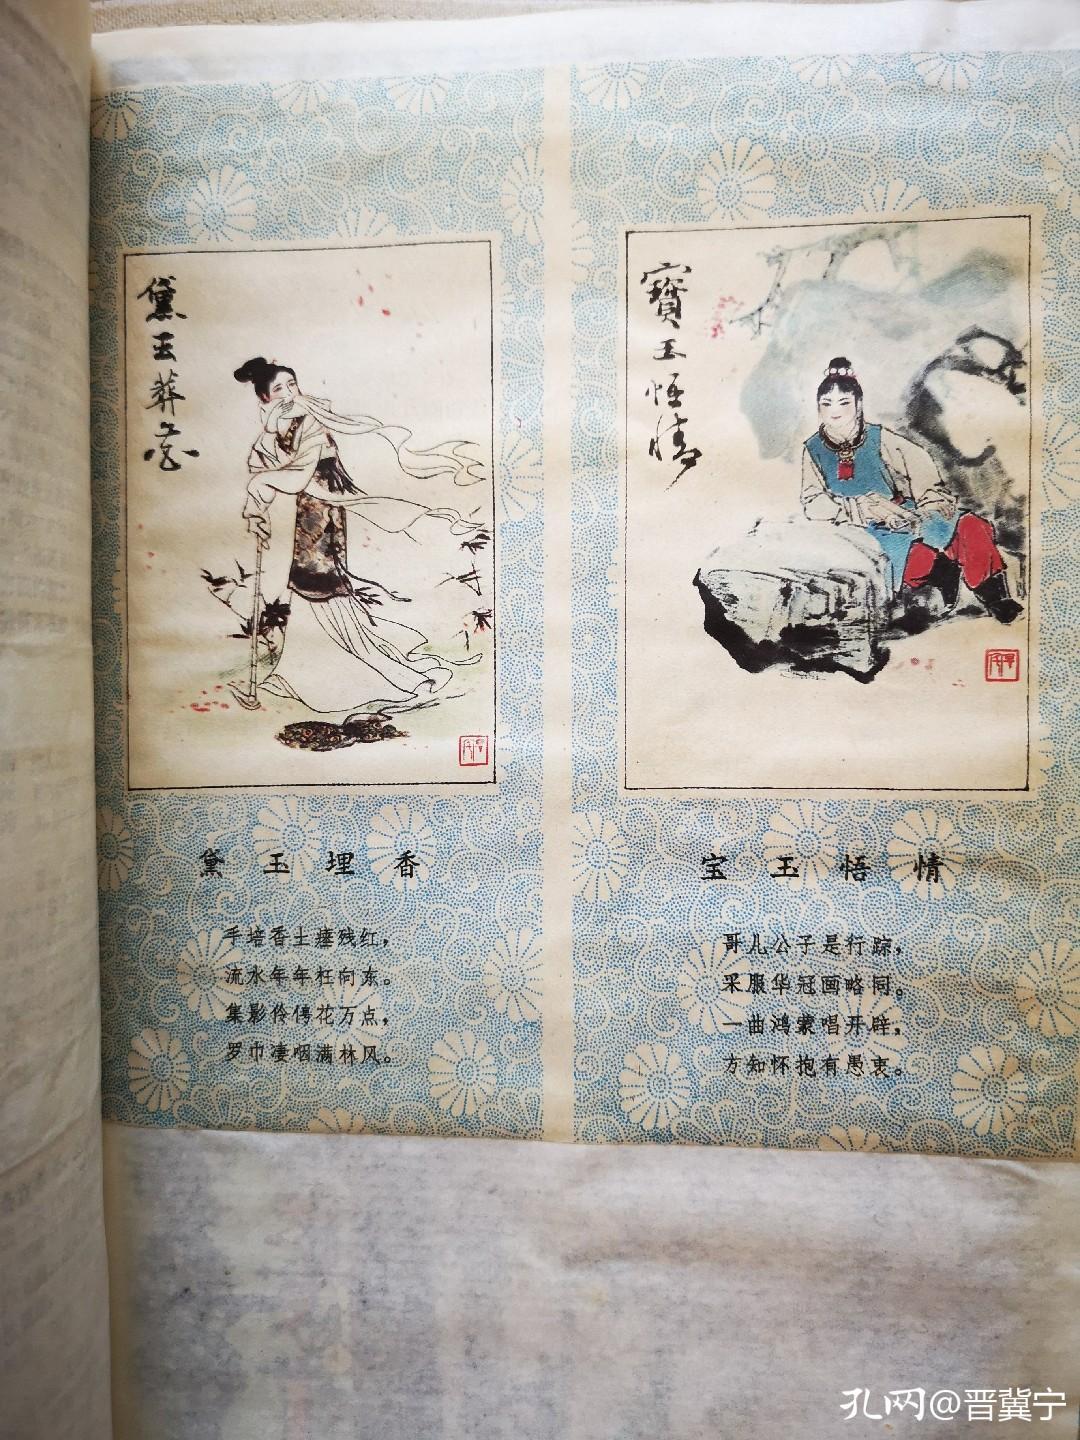 黛玉葬花
黛玉埋香
手培香土瘗残红，
流水年年枉向东。
集影伶俜花万点，
罗巾凄咽满林风。
寳玉悟情
宝玉悟情
哥儿公子是行踪，
采服华冠画略同。
一曲鸿蒙唱开辟，
方知怀抱有愚衷。
孔网@晋冀宁